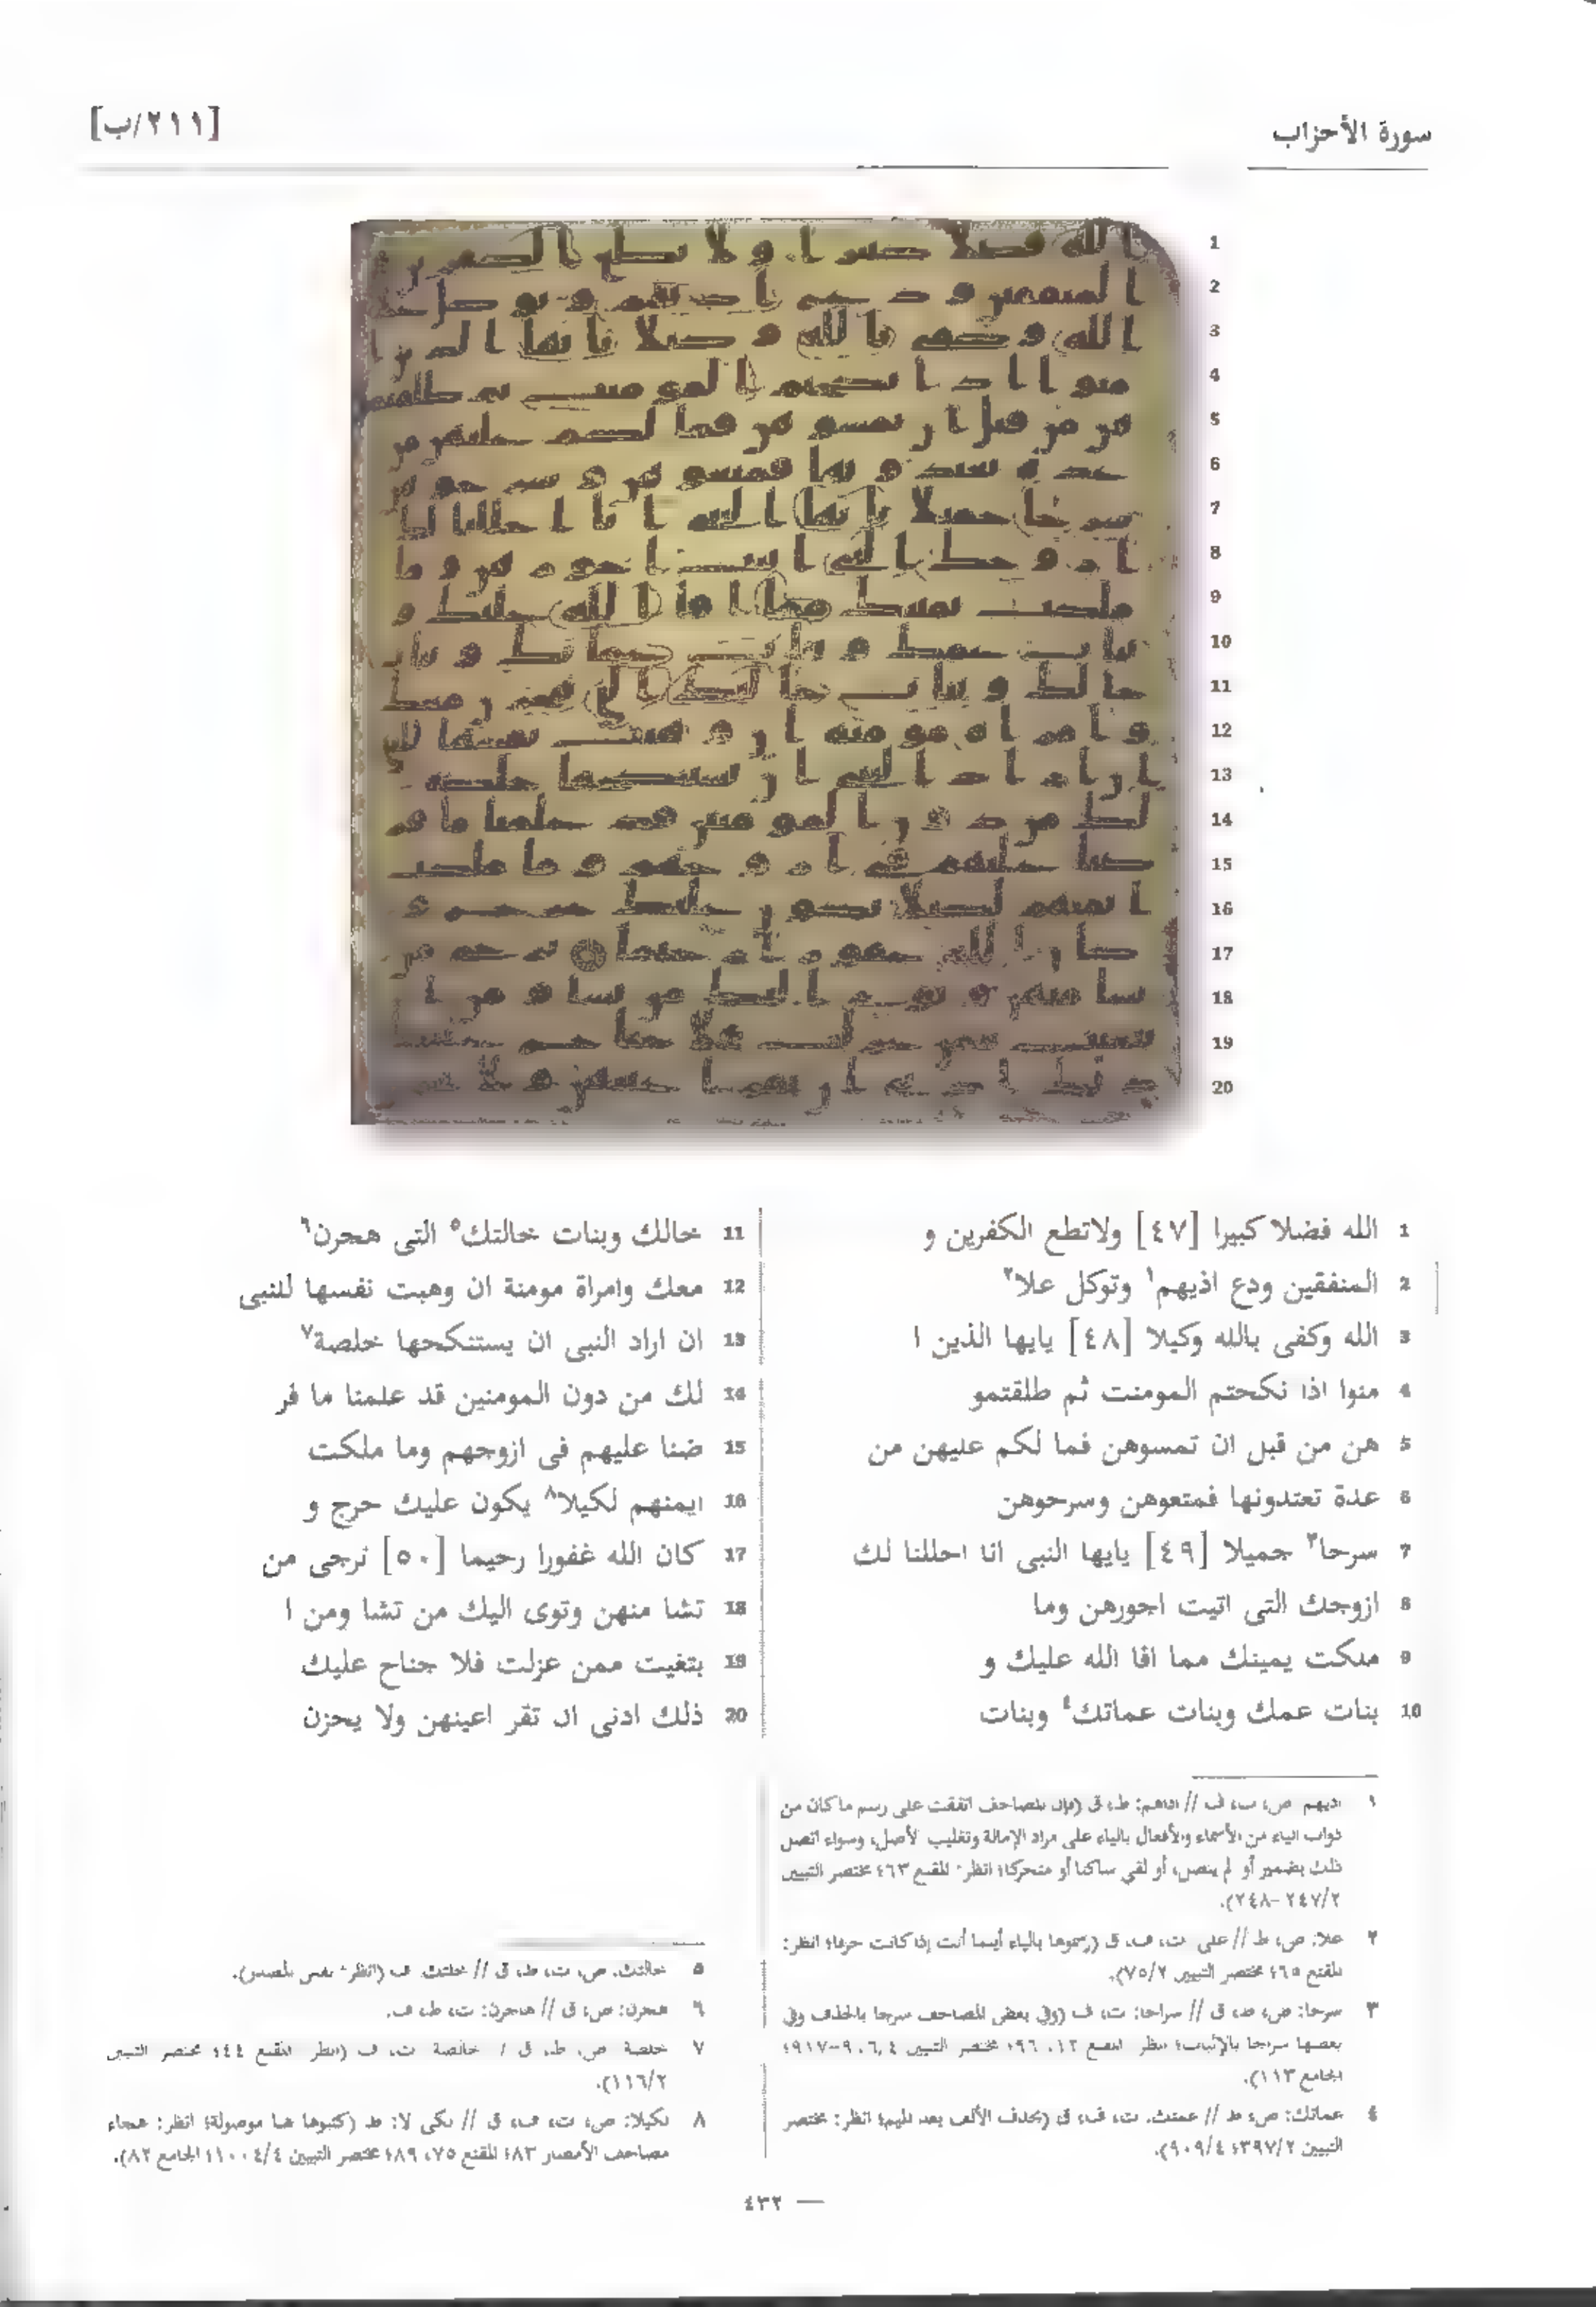 سورة الأحزاب
[٢١١/ب]
1 الله فضلا كبيرا [٤٧] ولاتطع الكفرين و
2 المنفقين ودع اذيهم١ وتوكل علا٢
3 الله وكفى بالله وكيلا [٤٨] يايها الذين ا
4 منوا اذا نكحتم المومنت ثم طلقتمو
5 هن من قبل ان تمسوهن فما لكم عليهن من
6 عدة تعتدونها فمتعوهن وسرحوهن
7 سرحا٣ جميلا [٤٩] يايها النبى انا احللنا لك
8 ازوجك التى اتيت اجورهن وما
9 ملكت يمينك مما افا الله عليك و
10 بنات عمك وبنات عماتك٤ وبنات
11 خالك وبنات خالتك٥ التى هجرن٦
12 معك وامراة مومنة ان وهبت نفسها للنبى
13 ان اراد النبى ان يستنكحها خلصة٧
14 لك من دون المومنين قد علمنا ما فر
15 ضنا عليهم فى ازوجهم وما ملكت
16 ايمنهم لكيلا٨ يكون عليك حرج و
17 كان الله غفورا رحيما [٥٠] ترجى من
18 تشا منهن وتوى اليك من تشا ومن ا
19 بتغيت ممن عزلت فلا جناح عليك
20 ذلك ادنى ان تقر اعينهن ولا يحزن
١ اذيهم ص، ت، ف // اذاهم: ط، ق (فإن المصاحف اتفقت على رسم ما كان من
ذوات الياء من الأسماء والأفعال بالياء على مراد الإمالة وتغليب الأصل، وسواء اتصل
ذلك بضمير أو لم يتصل، أو لقي ساكنا أو متحركا؛ انظر: المقنع ٦٣؛ مختصر التبيين
٢٤٧/٢-٢٤٨).
٢ علا: ص، ط // على ت، ف، ق (رسموها بالياء أينما أتت إذا كانت حرفا؛ انظر:
المقنع ٦٥؛ مختصر التبيين ٧٥/٢).
٣ سرحا: ص، ط، ق // سراحا: ت، ف (وفي بعض المصاحف سرجا بالحذف وفي
بعضها سراجا بالإثبات؛ انظر المقنع ١٢، ٩٦؛ مختصر التبيين
الجامع ١١٣).
٤ عماتك: ص، ط // عمتك. ت، ف، ق (بحذف الألف بعد الميم؛ انظر: مختصر
التبيين ٣٩٧/٢؛ ٩٠٩/٤).
٥ خالتك. ص، ت، ط، ق // خلتك ف (انظر: نفس المصدر).
٦ هجرن: ص، ق // هاجرن: ت، ط، ف.
٧ خلصة ص، ط، ق / خالصة ت، ف (انظر المقنع ٤٤؛ مختصر التبيين
١١٦/٢).
٨ لكيلا: ص، ت، ف، ق // لكى لا: ط (كتبوها هنا موصولة؛ انظر: هجاء
مصاحف الأمصار ٨٣؛ المقنع ٧٥، ٨٩؛ مختصر التبيين ١٠٠٤/٤؛ الجامع ٨٢).
٤٣٢ —